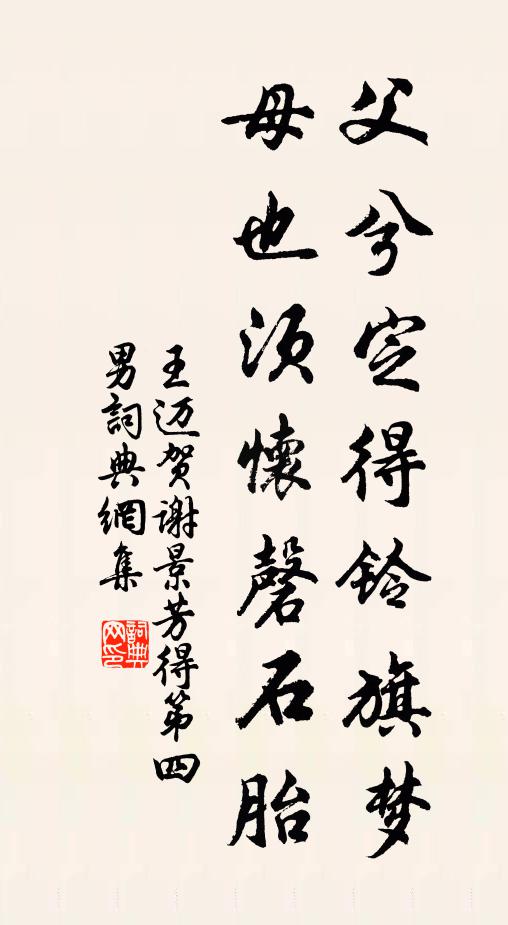 父兮定得铃旗梦
母也须懷磬石胎
王迈贺谢景芳得第四
男詞典網集
詞典网印